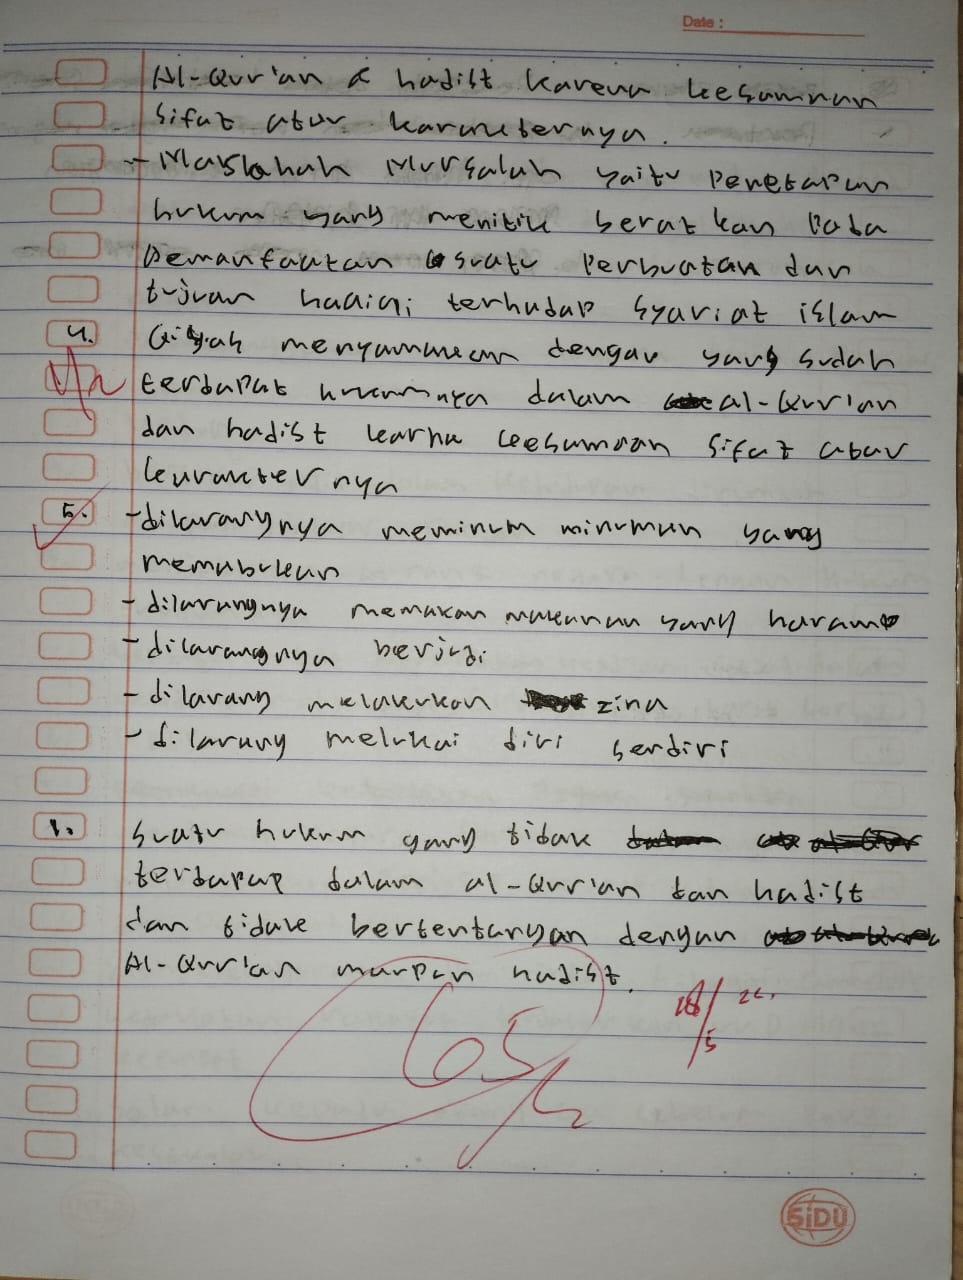 Date :
Al-Qur'an & hadist karena kesamaan
sifat atur karakternya.
- Maslahah Mursalah yaitu Penetapan
hukum yang menitik berat kan Pada
Pemanfaatan suatu Perbuatan dan
tujuan hakiqi terhadap syariat islam
4. Qiyas menyamakan dengan yang sudah
terdapat hukumnya dalam al-Qur'an
dan hadist karna kesamaan sifat atau
karakter nya
5. - dilarangnya meminum minuman yang
memabukan
- dilarangnya memakan makanan yang haram
- dilarangnya berjudi
- dilarang melakukan zina
- dilarang melukai diri serdiri
1. suatu hukum yang tidak
terdapap dalam al-Qur'an dan hadist
dan tidak bertentangan dengan
Al-Qur'an maupun hadist.
65
SiDU